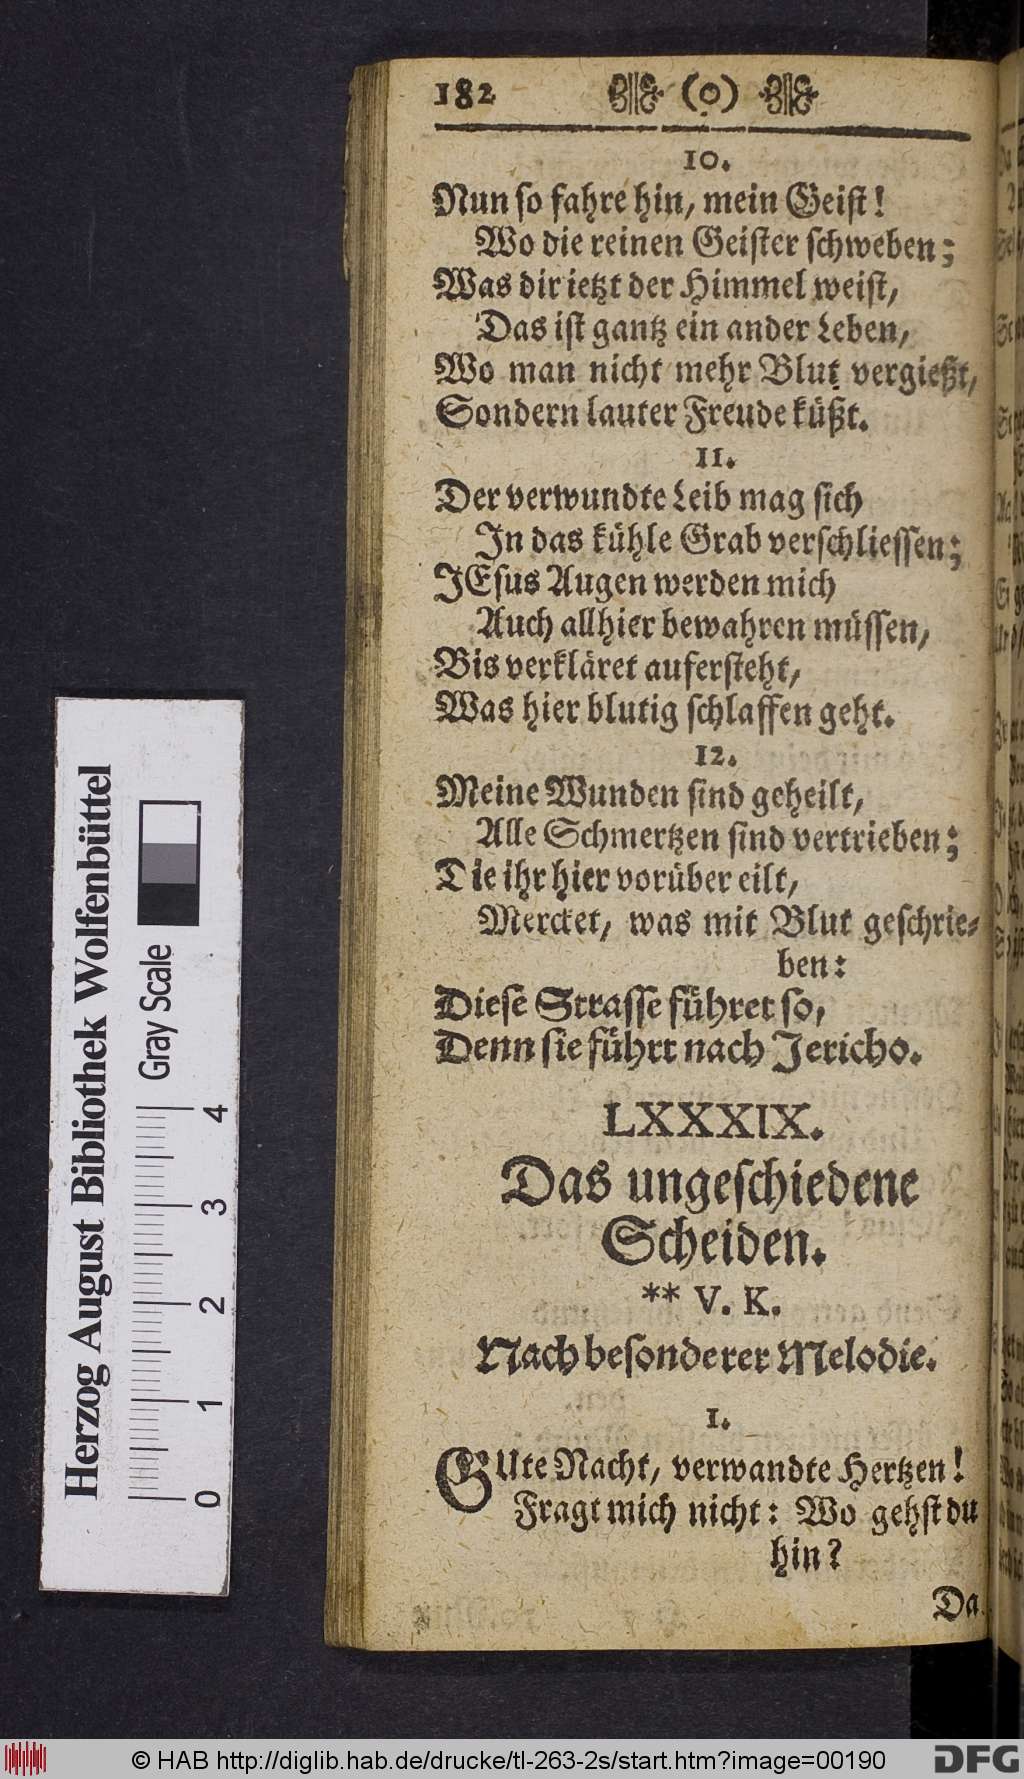 182 (o)
10.
Nun so fahre hin, mein Geist!
Wo die reinen Geister schweben;
Was dir ietzt der Himmel weist,
Das ist gantz ein ander Leben,
Wo man nicht mehr Blut vergießt,
Sondern lauter Freude küßt.
11.
Der verwundte Leib mag sich
In das kühle Grab verschliessen;
JEsus Augen werden mich
Auch allhier bewahren müssen,
Bis verkläret aufersteht,
Was hier blutig schlaffen geht.
12.
Meine Wunden sind geheilt,
Alle Schmertzen sind vertrieben;
Die ihr hier vorüber eilt,
Mercket, was mit Blut geschrie-
ben:
Diese Strasse führet so,
Denn sie führt nach Jericho.
LXXXIX.
Das ungeschiedene
Scheiden.
** V. K.
Nach besonderer Melodie.
1.
GUte Nacht, verwandte Hertzen!
Fragt mich nicht: Wo gehst du
hin?
Da
Herzog August Bibliothek Wolfenbüttel
Gray Scale
0 1 2 3 4
© HAB http://diglib.hab.de/drucke/tl-263-2s/start.htm?image=00190
DFG